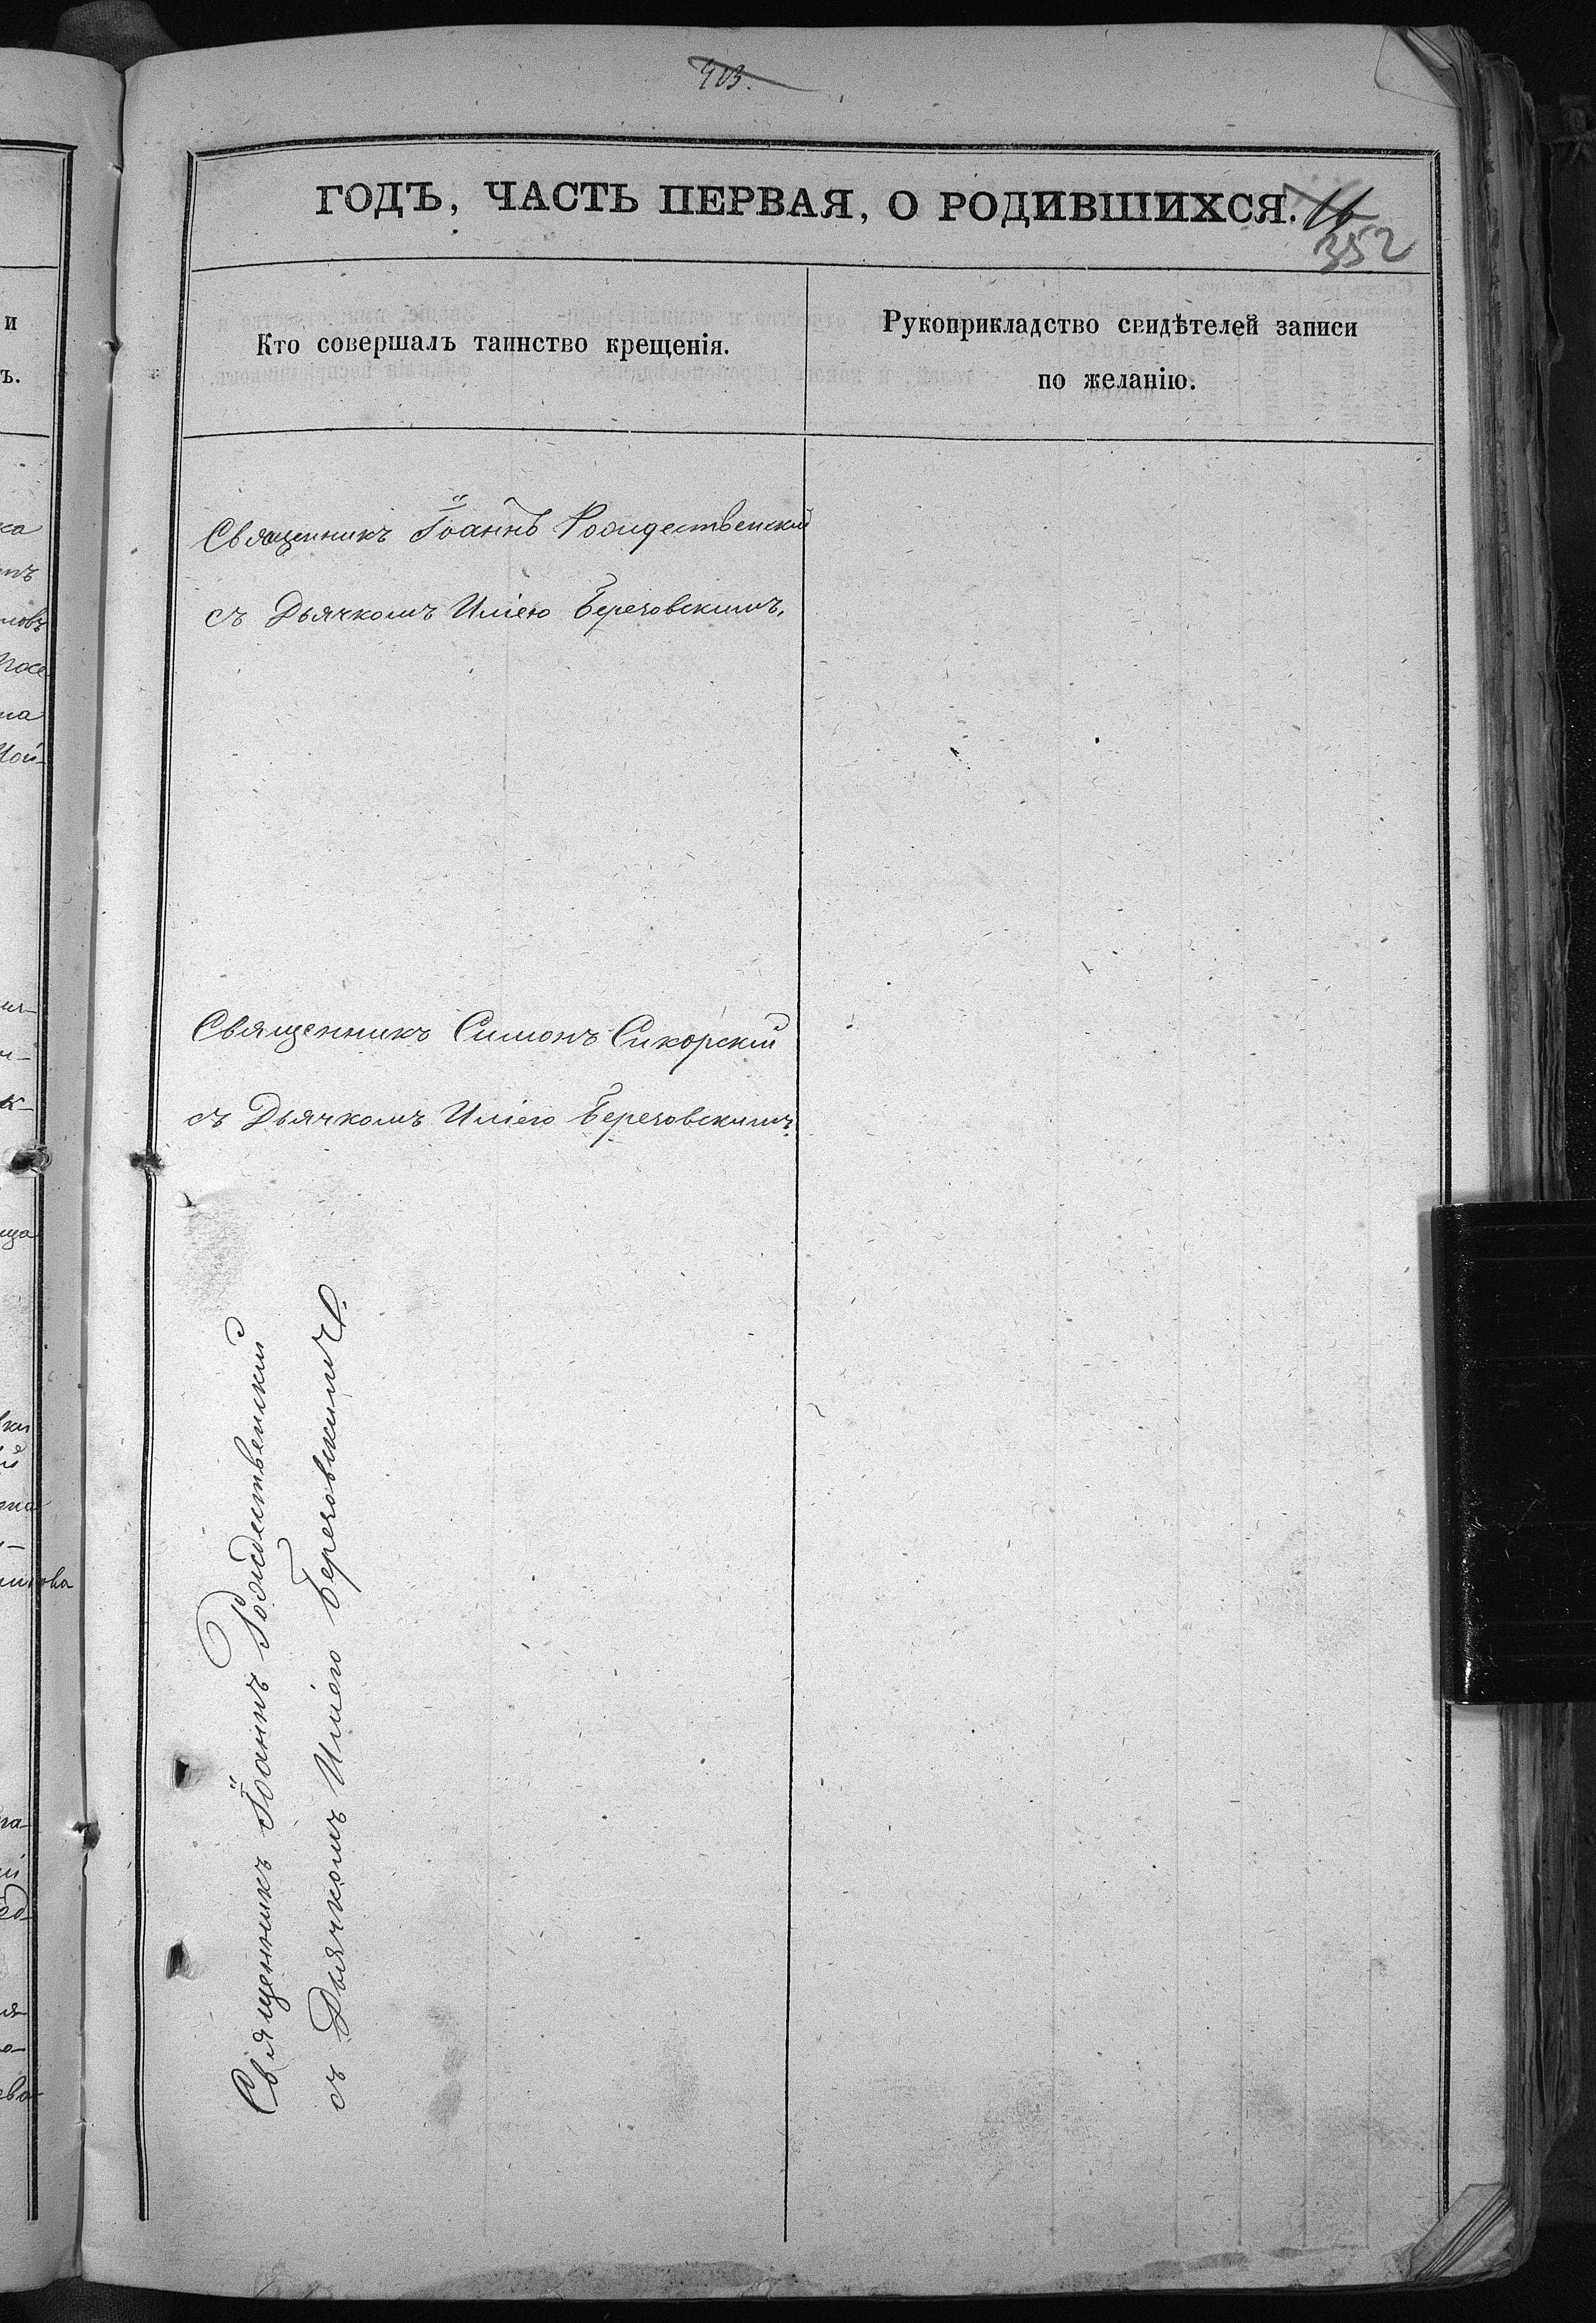 403.
ГОДЪ, ЧАСТЬ ПЕРВАЯ, О РОДИВШИХСЯ. 16
352
Кто совершалъ таинство крещенія.
Рукоприкладство свидѣтелей записи
по желанію.
Священникъ Іоаннъ Рождественскій
съ Дьячкомъ Иліею Березовскимъ.
Священникъ Симонъ Сикорскій
съ Дьячкомъ Иліею Березовскимъ.
Священникъ Іоаннъ Рождественскій
съ Дьячкомъ Иліею Березовскимъ.